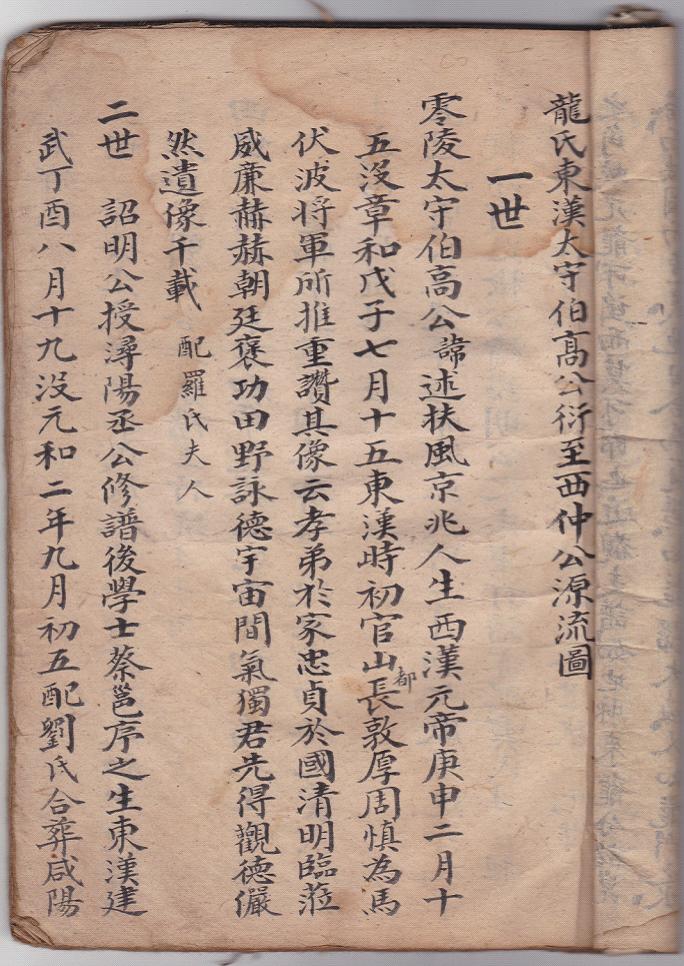 龍氏東漢太守伯高公衍至西仲公源流圖
一世
零陵太守伯高公諱述扶風京兆人生西漢元帝庚申二月十
五没章和戊子七月十五東漢時初官山都長敦厚周慎為馬
伏波将軍所推重讚其像云孝弟於家忠貞於國清明臨蒞
威廉赫赫朝廷褒功田野詠德宇宙間氣獨君先得觀德儼
然遺像千載 配羅氏夫人
二世 詔明公授潯陽丞公修譜後學士蔡邕序之生東漢建
武丁酉八月十九没元和二年九月初五配劉氏合葬咸陽